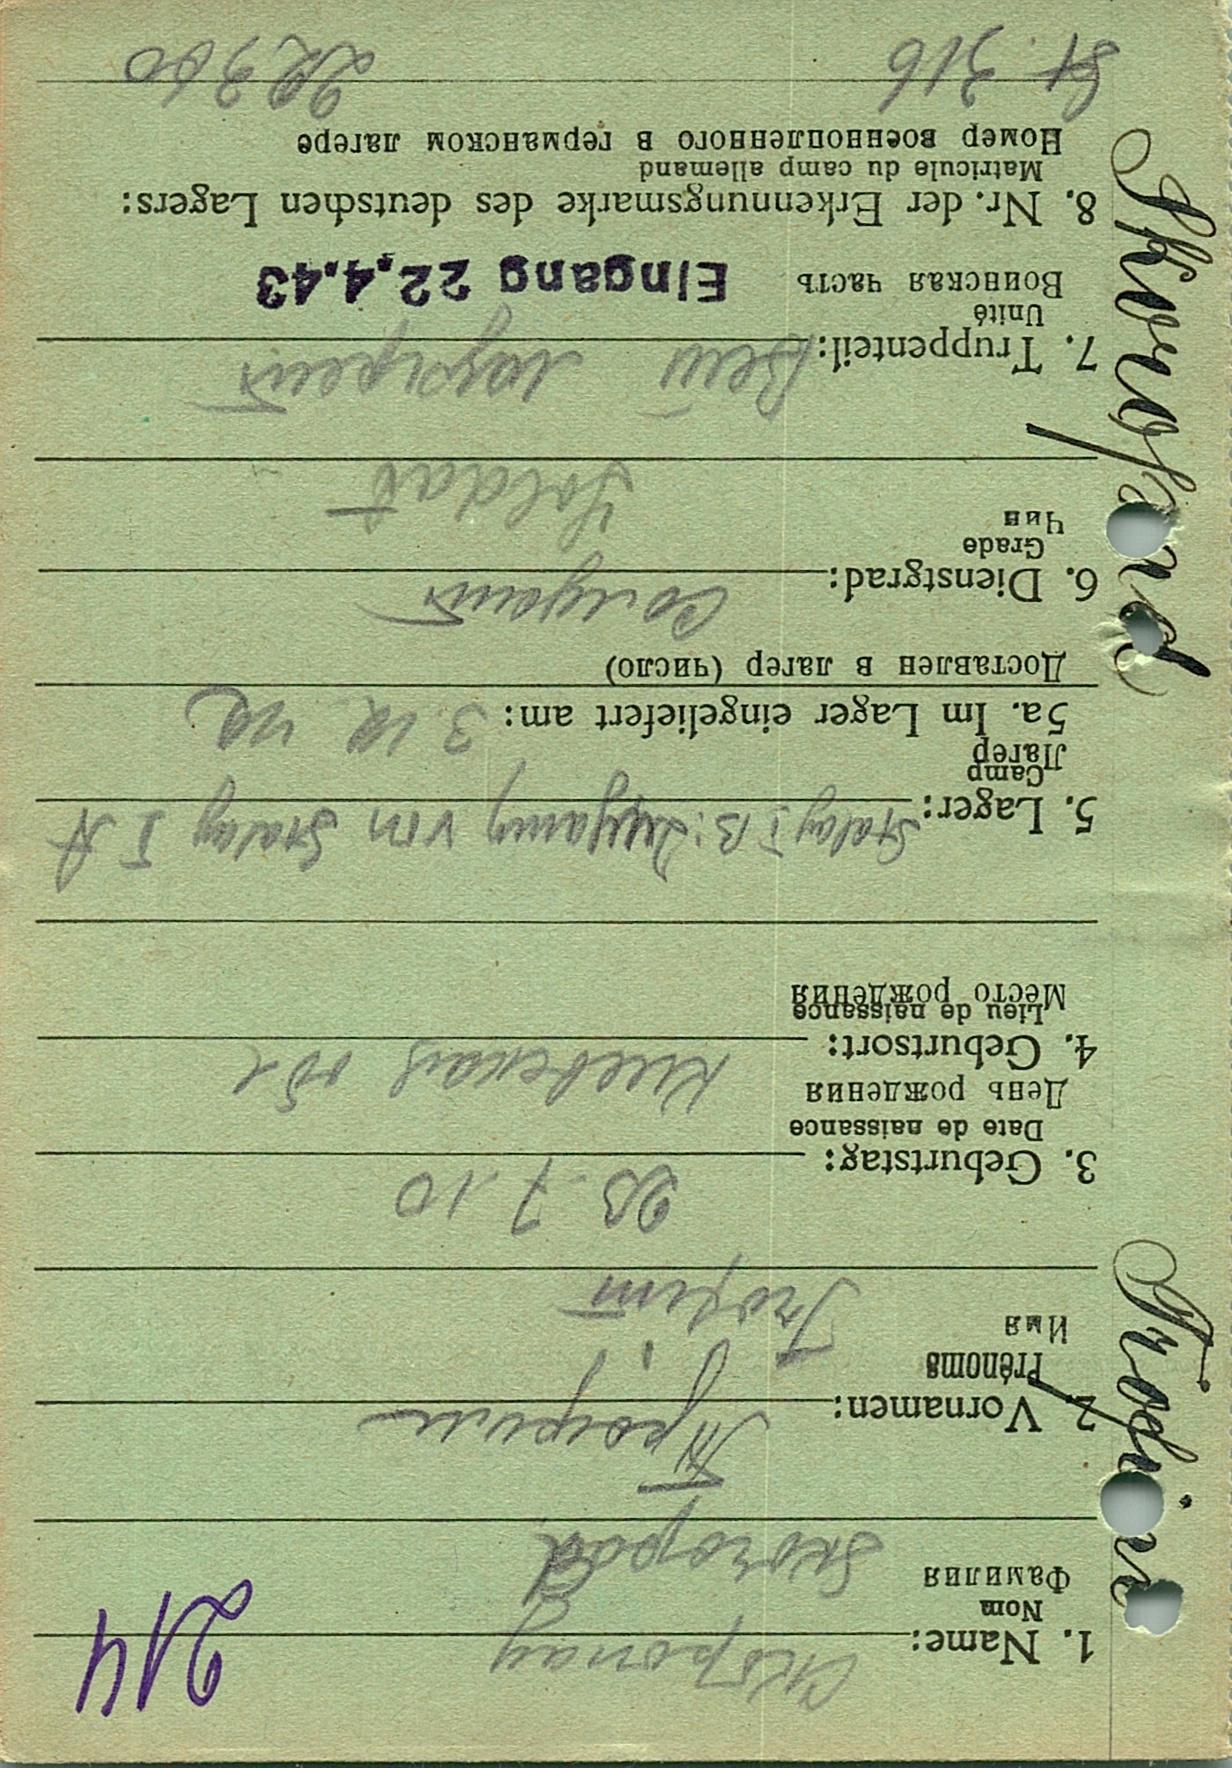 214
1. Name:
Nom
Фамилия
Skoropad
2. Vornamen:
Prénoms
Имя
Трофим
Trofim
3. Geburtstag: 23.7.10
Date de naissance
День рождения
4. Geburtsort: Киевская обл
Lieu de naissance
Место рождения
5. Lager: Stalag I B: Zugang von Stalag I A
Camp
Лагерь
5a. Im Lager eingeliefert am: 3.12.42
Доставлен в лагер (число)
6. Dienstgrad: Солдат
Grade
Чин
Soldat
7. Truppenteil: лазарет
Unité
Воинская часть
Eingang 22.4.43
8. Nr. der Erkennungsmarke des deutschen Lagers:
Matricule du camp allemand
Номер военнопленного в германском лагере
St. 316 22360
Trofim
Skoropad